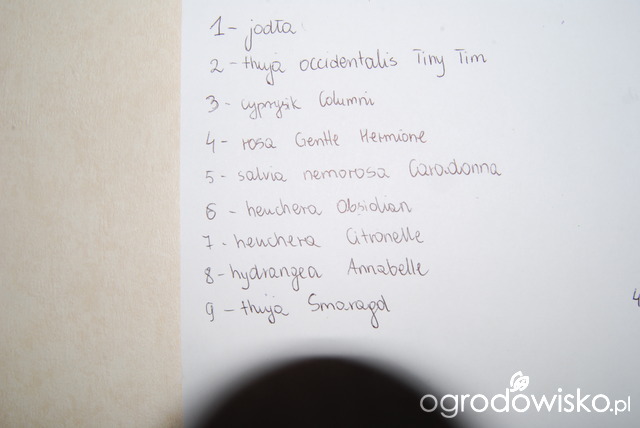 1 - jodła
2 - thuja occidentalis Tiny Tim
3 - cyprysik Columni
4 - rosa Gentle Hermione
5 - salvia nemorosa Caradonna
6 - heuchera Obsidian
7 - heuchera Citronelle
8 - hydrangea Annabelle
9 - thuja Smaragd
4
ogrodowisko.pl